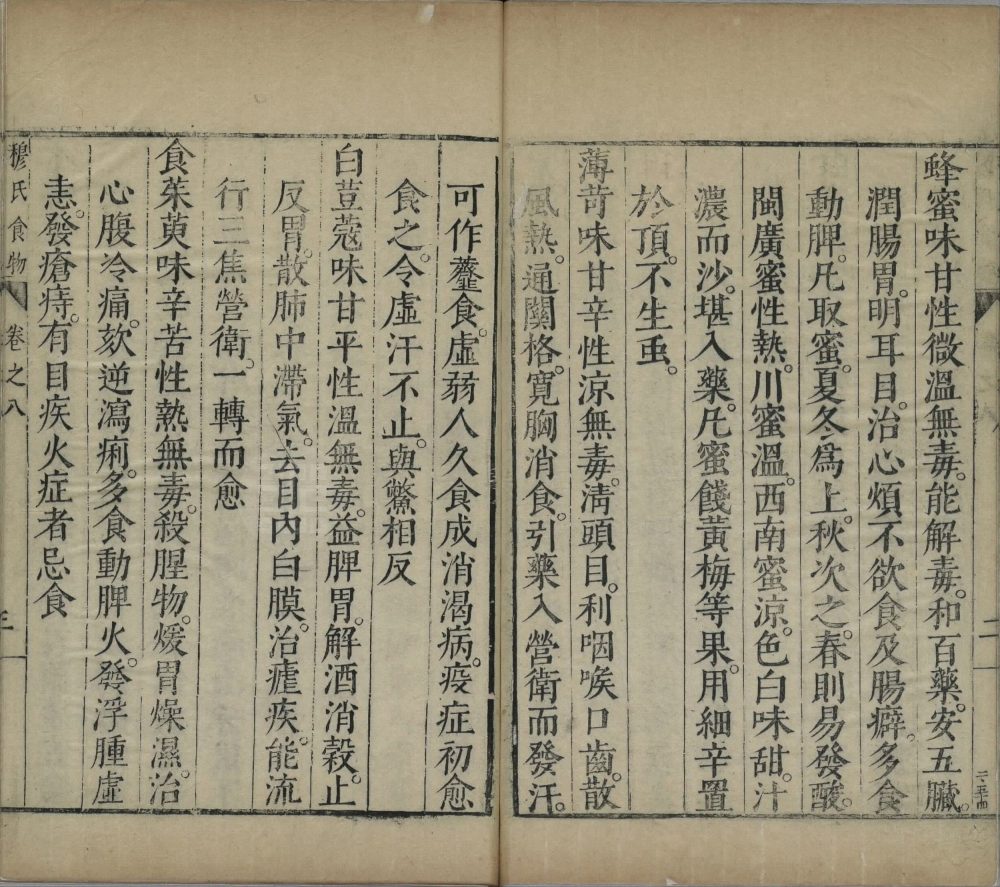 蜂蜜味甘性微溫無毒。能解毒。和百藥。安五臟。
潤腸胃。明耳目。治心煩不欲食及腸癖。多食
動脾。凡取蜜。夏冬為上。秋次之。春則易發酸。
閩廣蜜性熱。川蜜溫。西南蜜涼。色白味甜。汁
濃而沙。堪入藥。凡蜜餞黃梅等果。用細辛置
於頂。不生䖝。
薄苛味甘辛性涼無毒。清頭目。利咽喉口齒。散
風熱。通關格。寬胸消食。引藥入營衛而發汗。
可作虀食。虛弱人久食成消渴病。疫症初愈
食之。令虛汗不止。與鱉相反
白荳蔻味甘平性溫無毒。益脾胃。解酒消穀。止
反胃。散肺中滯氣。去目內白膜。治瘧疾。能流
行三焦營衛。一轉而愈
食茱萸味辛苦性熱無毒。殺腥物。煖胃燥濕。治
心腹冷痛。欬逆瀉痢。多食動脾火。發浮腫虛
恚。發瘡痔。有目疾火症者忌食
穆氏食物 卷之八